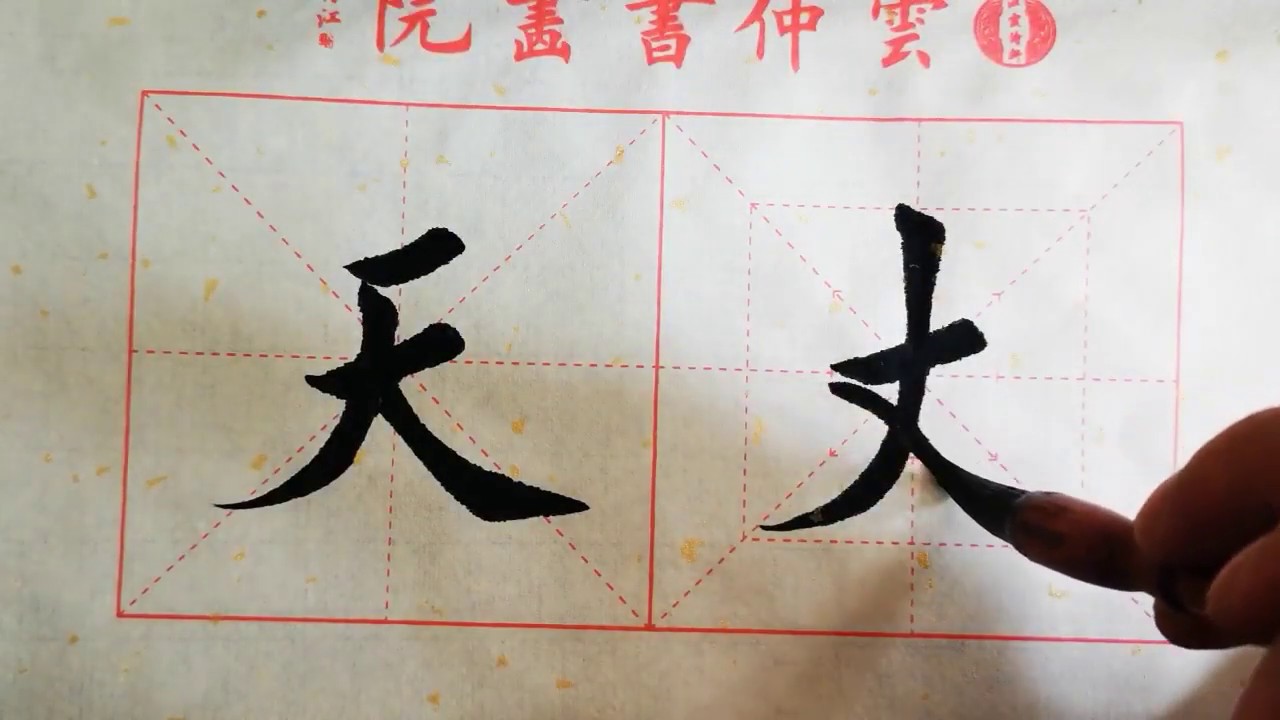 院畫書仲雲
天丈